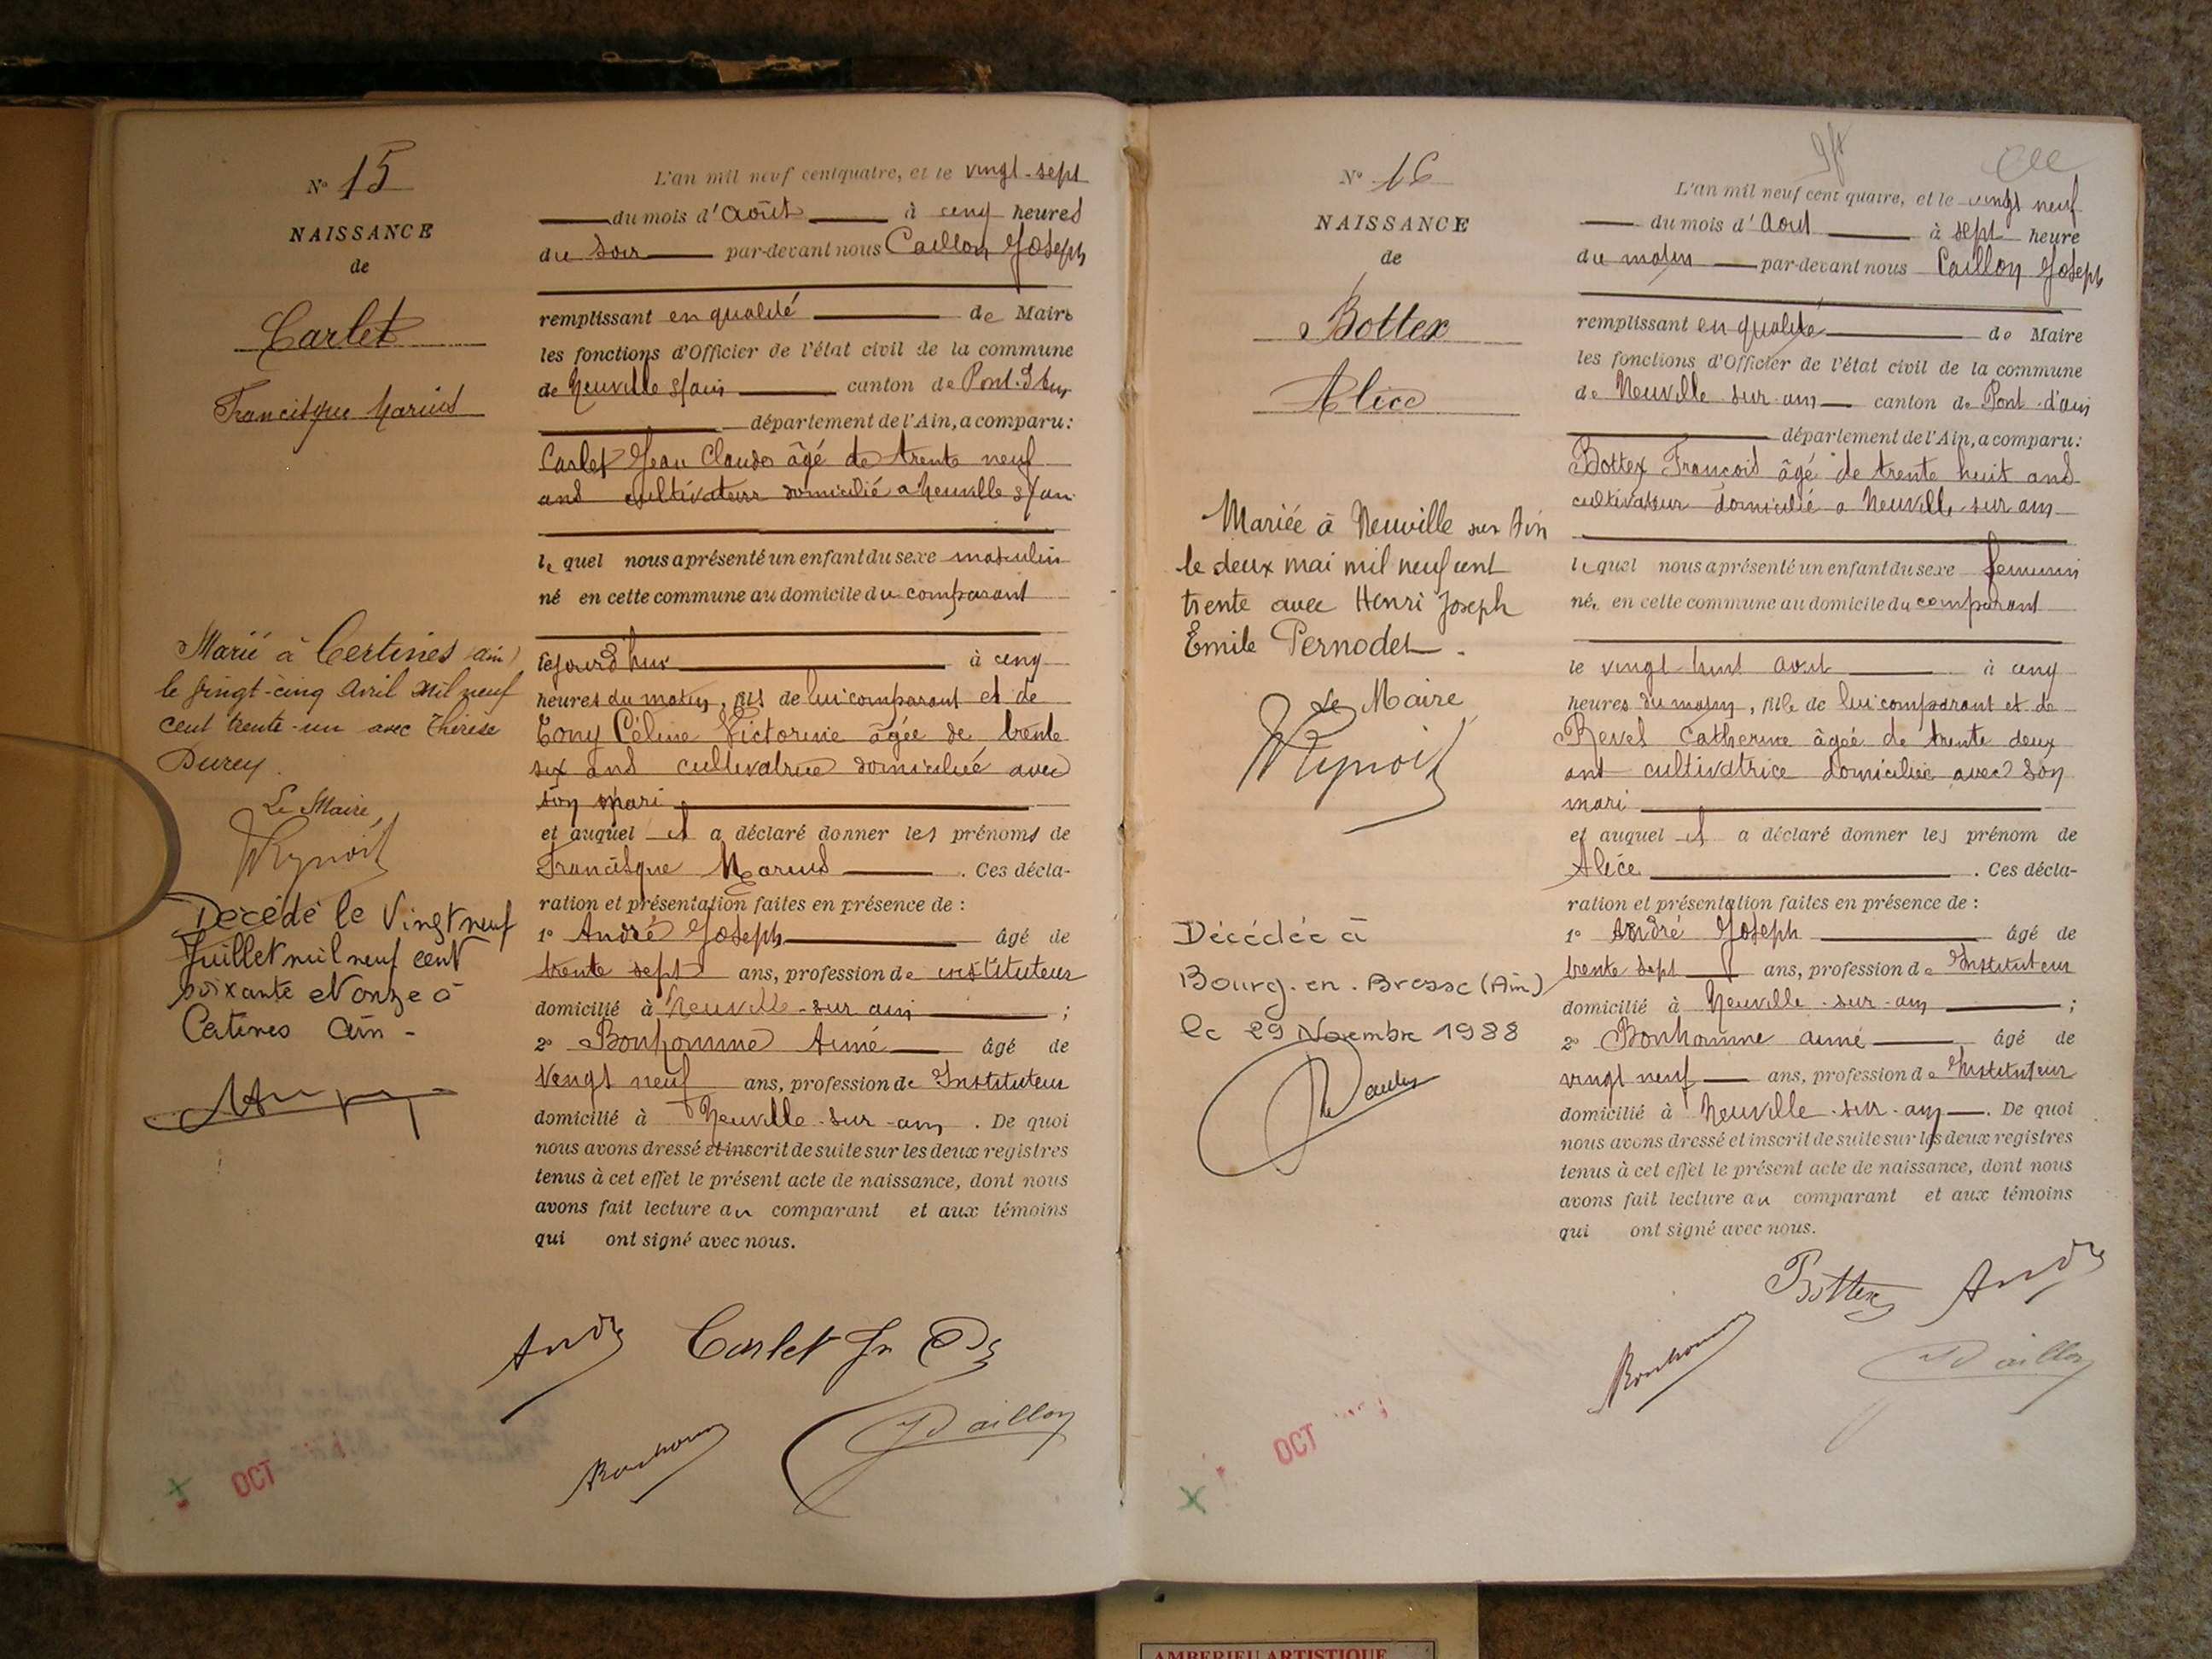 N° 15
NAISSANCE
de
Carlet
Francisque Marius
Marié à Certines (ain)
le vingt-cinq Avril mil neuf
cent trente-un avec Thérèse
Durey.
Le Maire,
Décédé le Vingt neuf
Juillet mil neuf cent
soixante et onze à
Certines Ain -
OCT
L'an mil neuf cent quatre, et le vingt-sept
du mois d'Août à cinq heures
du soir par-devant nous Caillon Joseph
remplissant en qualité de Maire
les fonctions d'Officier de l'état civil de la commune
de Neuville s/ain canton de Pont-d'ain
département de l'Ain, a comparu :
Carlet Jean Claude âgé de trente neuf
ans cultivateur domicilié a Neuville s/ain
le quel nous a présenté un enfant du sexe masculin
né en cette commune au domicile du comparant
cejourd'hui à cinq
heures du matin, fils de lui comparant et de
Tony Céline Victorine âgée de trente
six ans cultivatrice domiciliée avec
son mari
et auquel il a déclaré donner les prénoms de
Francisque Marius . Ces décla-
ration et présentation faites en présence de :
1° André Joseph âgé de
trente sept ans, profession de instituteur
domicilié à Neuville-sur ain ;
2° Bonhomme Aimé âgé de
Vingt neuf ans, profession de Instituteur
domicilié à Neuville-sur-ain . De quoi
nous avons dressé et inscrit de suite sur les deux registres
tenus à cet effet le présent acte de naissance, dont nous
avons fait lecture au comparant et aux témoins
qui ont signé avec nous.
André Carlet Jn Cde
Bonhomme JCaillon
N° 16
NAISSANCE
de
Bottex
Alice
Mariée à Neuville sur Ain
le deux mai mil neuf cent
trente avec Henri Joseph
Emile Pernodet.
Le Maire,
Décédée à
Bourg-en-Bresse (Ain)
le 29 Novembre 1988
OCT
L'an mil neuf cent quatre, et le vingt neuf
du mois d'Aout à sept heure
du matin par-devant nous Caillon Joseph
remplissant en qualité de Maire
les fonctions d'Officier de l'état civil de la commune
de Neuville-sur-ain canton de Pont-d'ain
département de l'Ain, a comparu :
Bottex François âgé de trente huit ans
cultivateur domicilié a Neuville-sur ain
le quel nous a présenté un enfant du sexe feminin
née en cette commune au domicile du comparant
le vingt huit aout à cinq
heures du matin, fille de lui comparant et de
Revel Catherine âgée de trente deux
ans cultivatrice domiciliée avec son
mari
et auquel il a déclaré donner les prénom de
Alice . Ces décla-
ration et présentation faites en présence de :
1° André Joseph âgé de
trente sept ans, profession de Instituteur
domicilié à Neuville-sur-ain ;
2° Bonhomme aimé âgé de
vingt neuf ans, profession de Instituteur
domicilié à Neuville-sur-ain . De quoi
nous avons dressé et inscrit de suite sur les deux registres
tenus à cet effet le présent acte de naissance, dont nous
avons fait lecture au comparant et aux témoins
qui ont signé avec nous.
Bottex André
Bonhomme JCaillon
AMBERIEU ARTISTIQUE